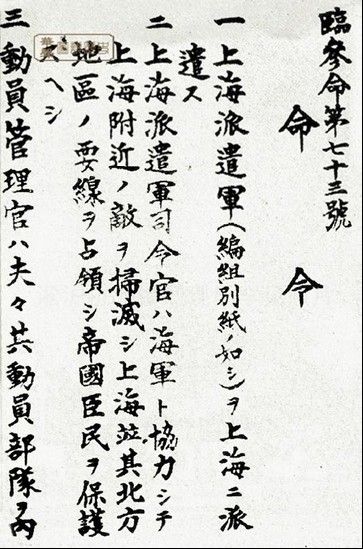 臨參命第七十三號
命令
一上海派遣軍(編組別紙ノ如シ)ヲ上海ニ派
遣ス
二上海派遣軍司令官ハ海軍ト協力シテ
上海附近ノ敵ヲ掃滅シ上海竝其北方
地區ノ要線ヲ占領シ帝國臣民ヲ保護
スヘシ
三動員管理官ハ夫々其動員部隊ヲ內